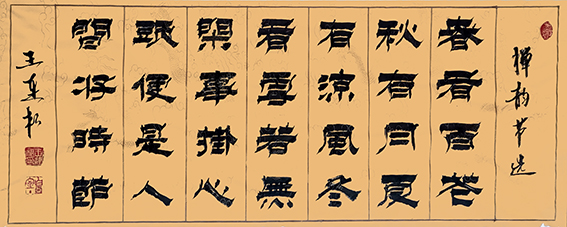 禅韵节选
春看百花
秋有月夏
有涼風冬
看雪若無
閑事掛心
頭便是人
間好時節